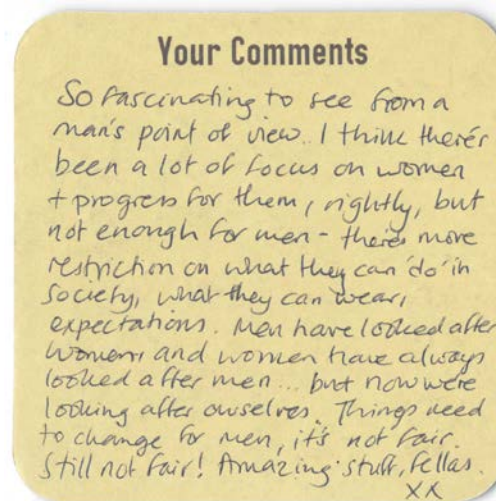 Your Comments
So fascinating to see from a
man's point of view. I think there's
been a lot of focus on women
+ progress for them, rightly, but
not enough for men - there's more
restriction on what they can 'do' in
society, what they can wear,
expectations. Men have looked after
women, and women have always
looked after men... but now we're
looking after ourselves. Things need
to change for men, it's not fair.
Still not fair! Amazing stuff, fellas.
xx